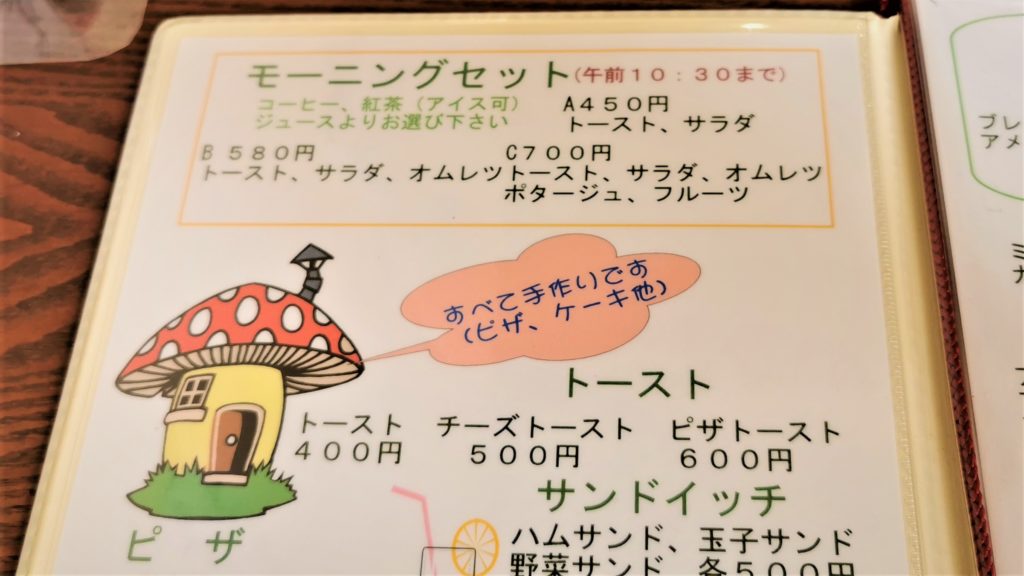 モーニングセット(午前10：30まで)
コーヒー、紅茶（アイス可）
ジュースよりお選び下さい
A450円
トースト、サラダ
B 580円
トースト、サラダ、オムレツ
C700円
トースト、サラダ、オムレツ
ポタージュ、フルーツ
すべて手作りです
(ピザ、ケーキ他)
トースト
トースト
400円
チーズトースト
500円
ピザトースト
600円
サンドイッチ
ハムサンド、玉子サンド
野菜サンド、各500円
ピザ
ブレ
アメ